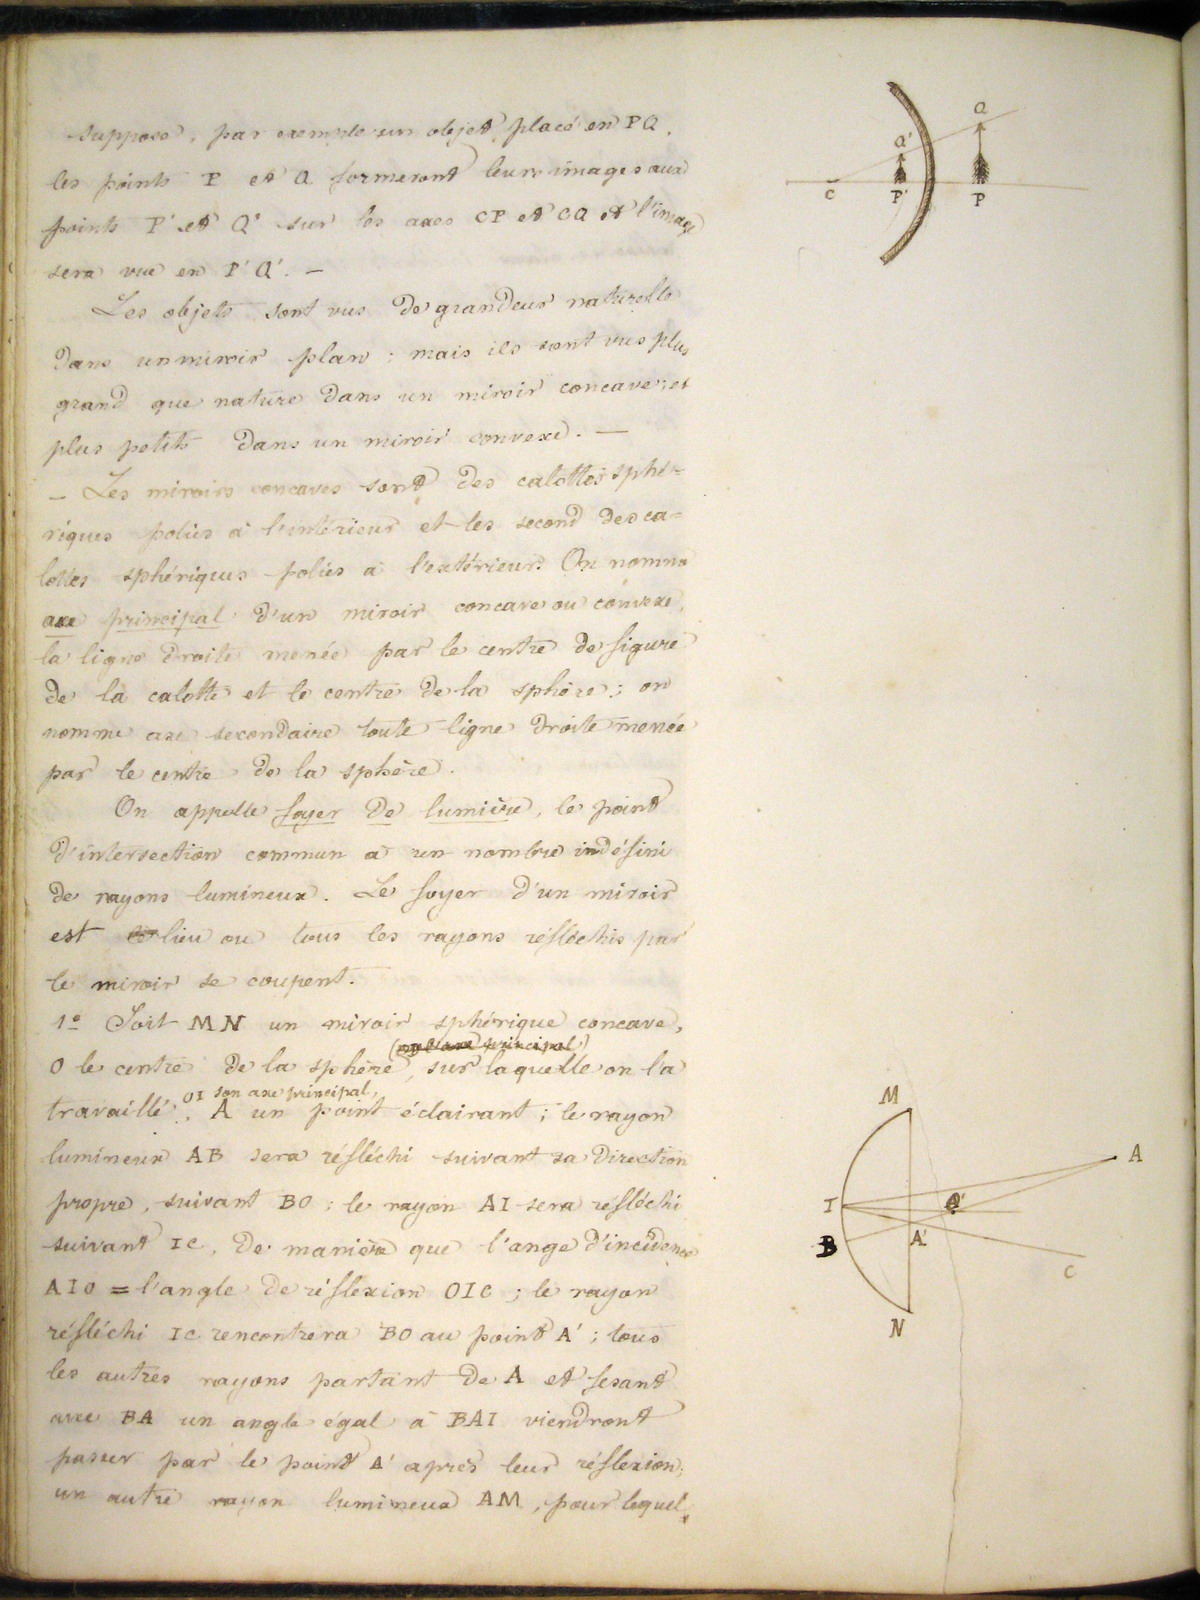 suppose, par exemple un objet placé en PQ,
les points P et Q formeront leurs images aux
points P' et Q' sur les axes CP et CQ et l'image
sera vue en P'Q'. —
Les objets sont vus de grandeur naturelle
dans un miroir plan ; mais ils sont vus plus
grand que nature dans un miroir concave, et
plus petits dans un miroir convexe. —
— Les miroirs concaves sont des calottes sphé-
riques polies à l'intérieur et les second des ca=
lottes sphériques polies à l'extérieur. On nomme
axe principal d'un miroir concave ou convexe,
la ligne droite menée par le centre de figure
de la calotte et le centre de la sphère ; on
nomme axe secondaire toute ligne droite menée
par le centre de la sphère.
On appelle foyer de lumière, le point
d'intersection commun à un nombre indéfini
de rayons lumineux. Le foyer d'un miroir
est lieu ou tous les rayons réfléchis par
le miroir se coupent.
1º Soit MN un miroir sphérique concave,
(ou l'axe principal)
O le centre de la sphère, sur laquelle on l'a
OI son axe principal,
travaillé, A un point éclairant ; le rayon
lumineux AB sera réfléchi suivant sa direction
propre, suivant BO ; le rayon AI sera réfléchi
suivant IC, de manière que l'ange d'incidence
AIO = l'angle de réflexion OIC ; le rayon
réfléchi IC rencontrera BO au point A' ; tous
les autres rayons partant de A et fesant
avec BA un angle égal à BAI viendront
passer par le point A' après leur réflexion ;
un autre rayon lumineux AM, pour lequel
Q
Q'
C
P'
P
M
A
I
O
B
A'
C
N